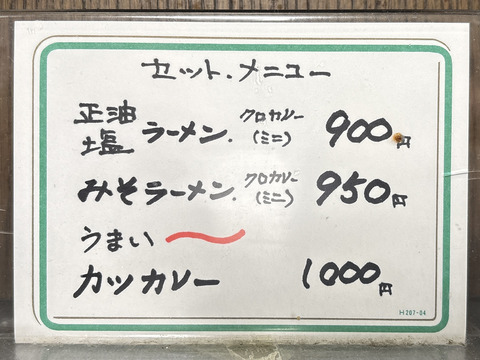 セット.メニュー
正油
塩 ラーメン. クロカレー(ミニ) 900円
みそラーメン. クロカレー(ミニ) 950円
うまい〜
カツカレー 1000円
H207-04